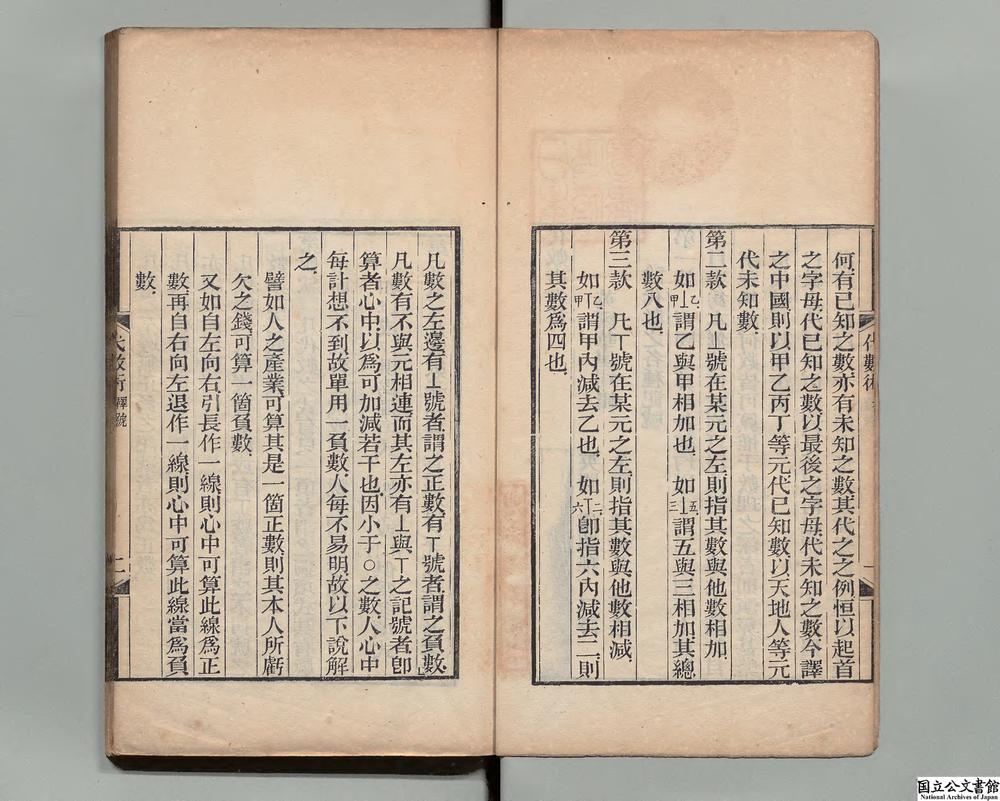 何有已知之數亦有未知之數其代之之例恒以起首
之字母代已知之數以最後之字母代未知之數今譯
之中國則以甲乙丙丁等元代已知數以天地人等元
代未知數
第二款　凡⊥號在某元之左則指其數與他數相加
如甲⊥乙謂乙與甲相加也　如三⊥五謂五與三相加其總
數八也
第三款　凡丅號在某元之左則指其數與他數相減
如甲丅乙謂甲內減去乙也　如六丅二卽指六內減去二則
其數爲四也
凡數之左邊有⊥號者謂之正數有丅號者謂之負數
凡數有不與元相連而其左亦有⊥與丅之記號者卽
算者心中以爲可加減若干也因小于○之數人心中
每計想不到故單用一負數人每不易明故以下說解
之
譬如人之產業可算其是一箇正數則其本人所虧
欠之錢可算一箇負數
又如自左向右引長作一線則心中可算此線爲正
數再自右向左退作一線則心中可算此線當爲負
數
代數術 釋號
二
国立公文書館
National Archives of Japan